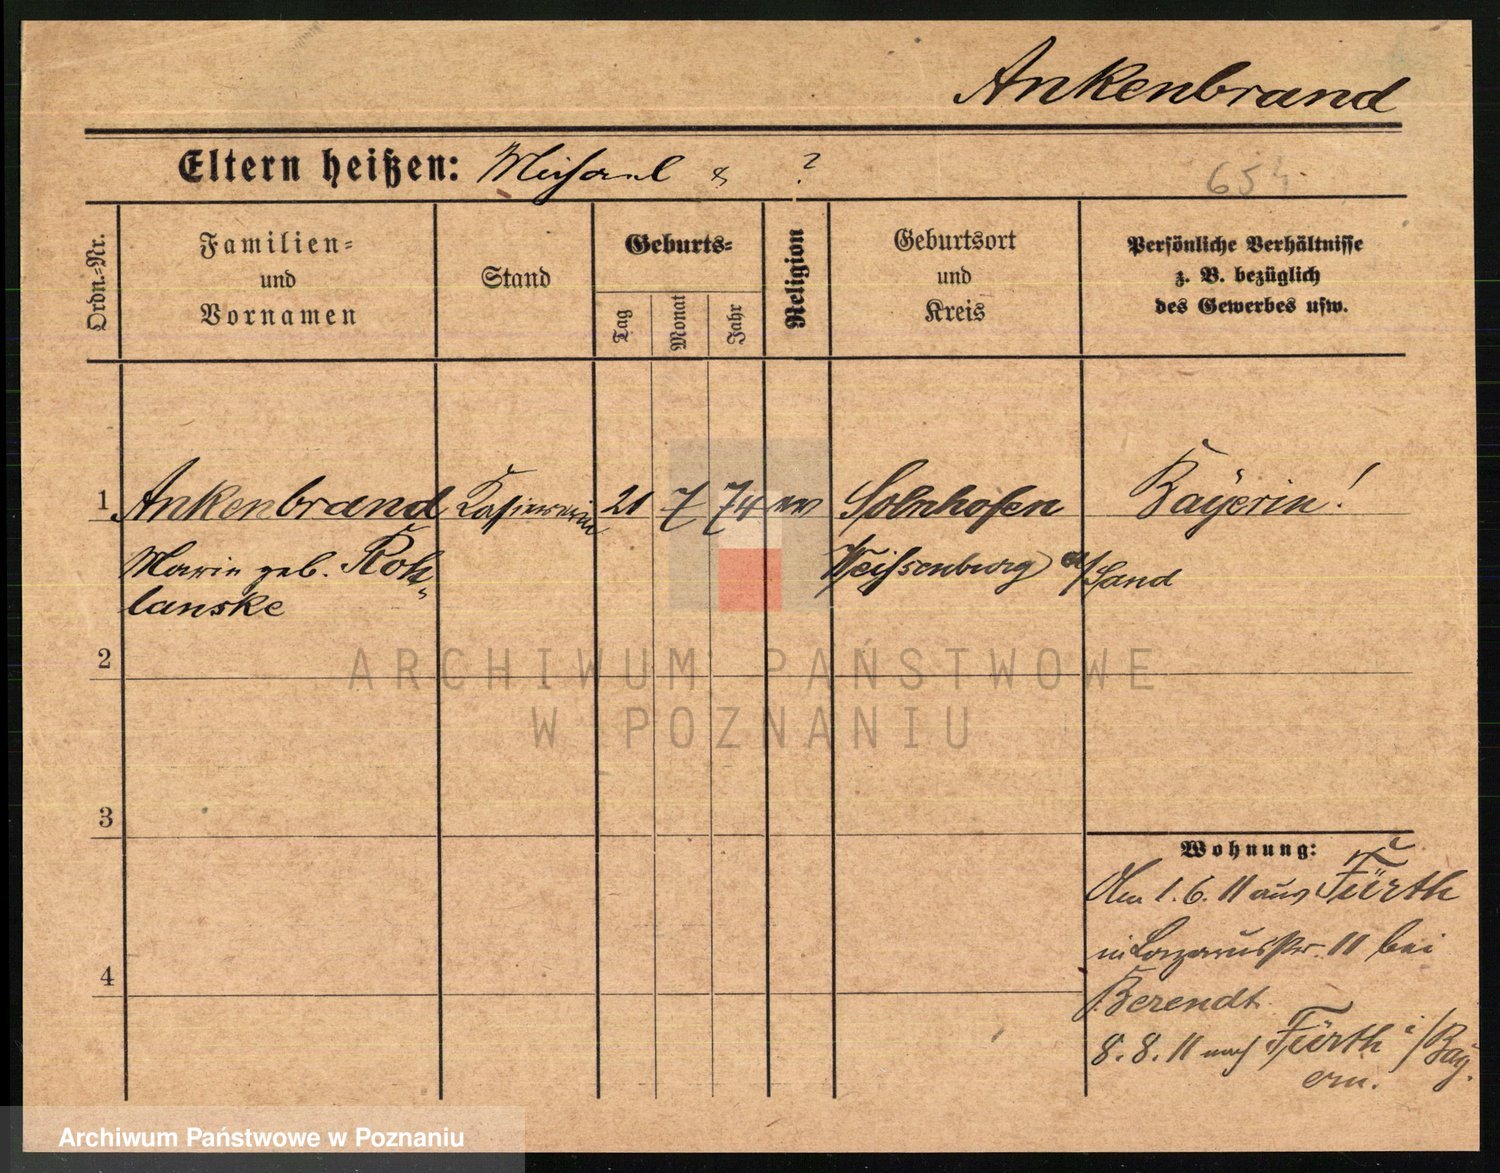 Ankenbrand
Eltern heißen: Michael & ?
654
Ordn.-Nr.
Familien-
und
Vornamen
Stand
Geburts-
Tag
Monat
Jahr
Religion
Geburtsort
und
Kreis
Persönliche Verhältnisse
z. B. bezüglich
des Gewerbes usw.
1 Ankenbrand Kassiererin 21 7 74 Solnhofen Bayerin!
Marie geb. Roh„ Weissenburg a/Sand
lanske
2
3
4
Wohnung:
Am 1.6.11 aus Fürth
in Lazarusstr. 11 bei
Berendt.
8.8.11 nach Fürth i/Bay„
ern.
ARCHIWUM PAŃSTWOWE
W POZNANIU
Archiwum Państwowe w Poznaniu